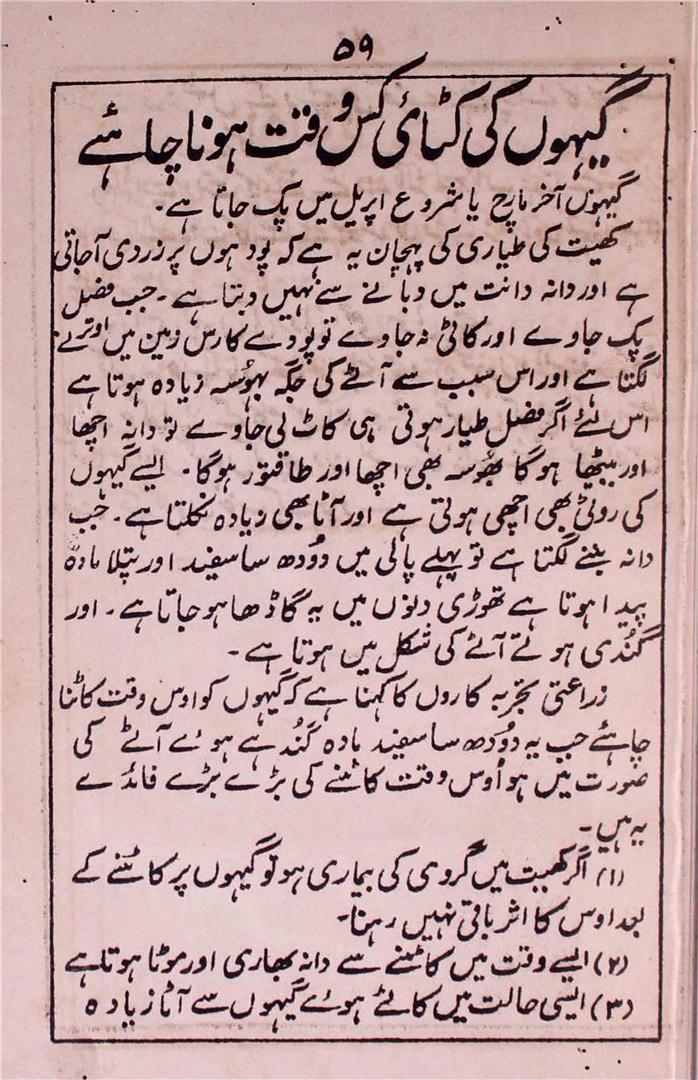 ۵۹
گیہوں کی کٹائی کس وقت ہونا چاہئے
گیہوں آخر مارچ یا شروع اپریل میں پک جاتا ہے۔
کھیت کی طیاری کی پہچان یہ ہے کہ پودہوں پر زردی آجاتی
ہے اور دانہ دانت میں دبانے سے نہیں دبتا ہے۔ جب فضل
پک جاوے اور کاٹی نہ جاوے تو پودے کا رس زمین میں اوترنے
لگتا ہے اور اس سبب سے آٹے کی جگہ بہوُسہ زیادہ ہوتا ہے
اس لئے اگر فضل طیار ہوتی ہی کاٹ لی جاوے تو دانہ اچھا
اور میٹھا ہوگا بھُوسہ بھی اچھا اور طاقتور ہوگا۔ ایسے گیہوں
کی روٹی بھی اچھی ہوتی ہے اور آٹا بھی زیادہ نکلتا ہے۔ جب
دانہ بننے لگتا ہے تو پہلے پالی میں دُودھ سا سفید اور پتلا مادہ
پیدا ہوتا ہے تھوڑی دنوں میں یہ گاڈھا ہوجاتا ہے۔ اور
گُندی ہوئے آٹے کی شکل میں ہوتا ہے۔
زراعتی تجربہ کاروں کا کہنا ہے کہ گیہوں کو اوس وقت کاٹنا
چاہئے جب یہ دُودھ سا سفید مادہ گُندہے ہوے آٹے کی
صورت میں ہو اُوس وقت کاٹنے کی بڑے بڑے فائدے
یہ ہیں۔
(۱) اگر کھیت میں گروی کی بیماری ہو تو گیہوں پر کاٹنے کے
بعد اوس کا اثر باقی نہیں رہتا۔
(۲) ایسے وقت میں کاٹنے سے دانہ بھاری اور موٹا ہوتا ہے
(۳) ایسی حالت میں کاٹے ہوئے گیہوں سے آٹا زیادہ